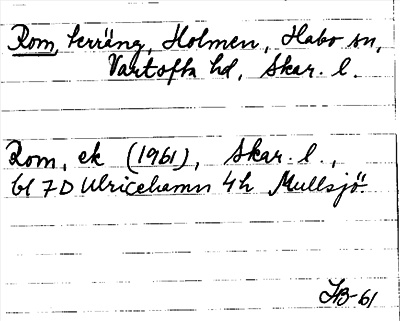 Rom, terräng, Holmen, Habo sn,
Vartofta hd, Skar. l.
Rom, ek (1961), Skar. l.,
bl 7D Ulricehamn 4h Mullsjö
IB-61